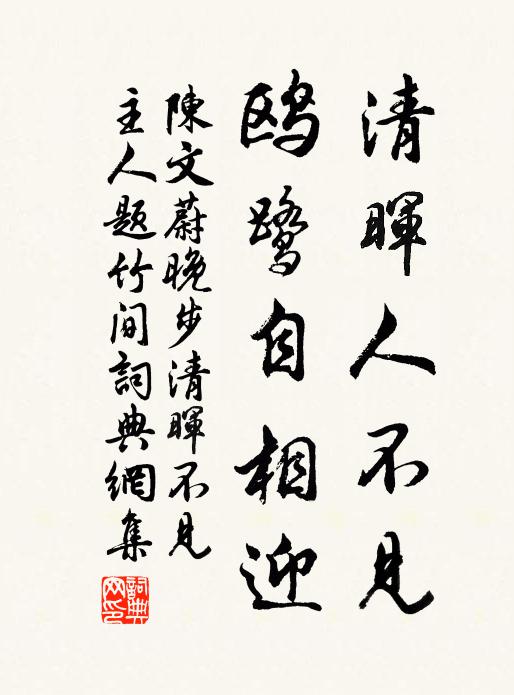 清暉人不見
鸥鹭自相迎
陳文蔚晚步清暉不見
主人题竹间詞典網集
詞典
网印